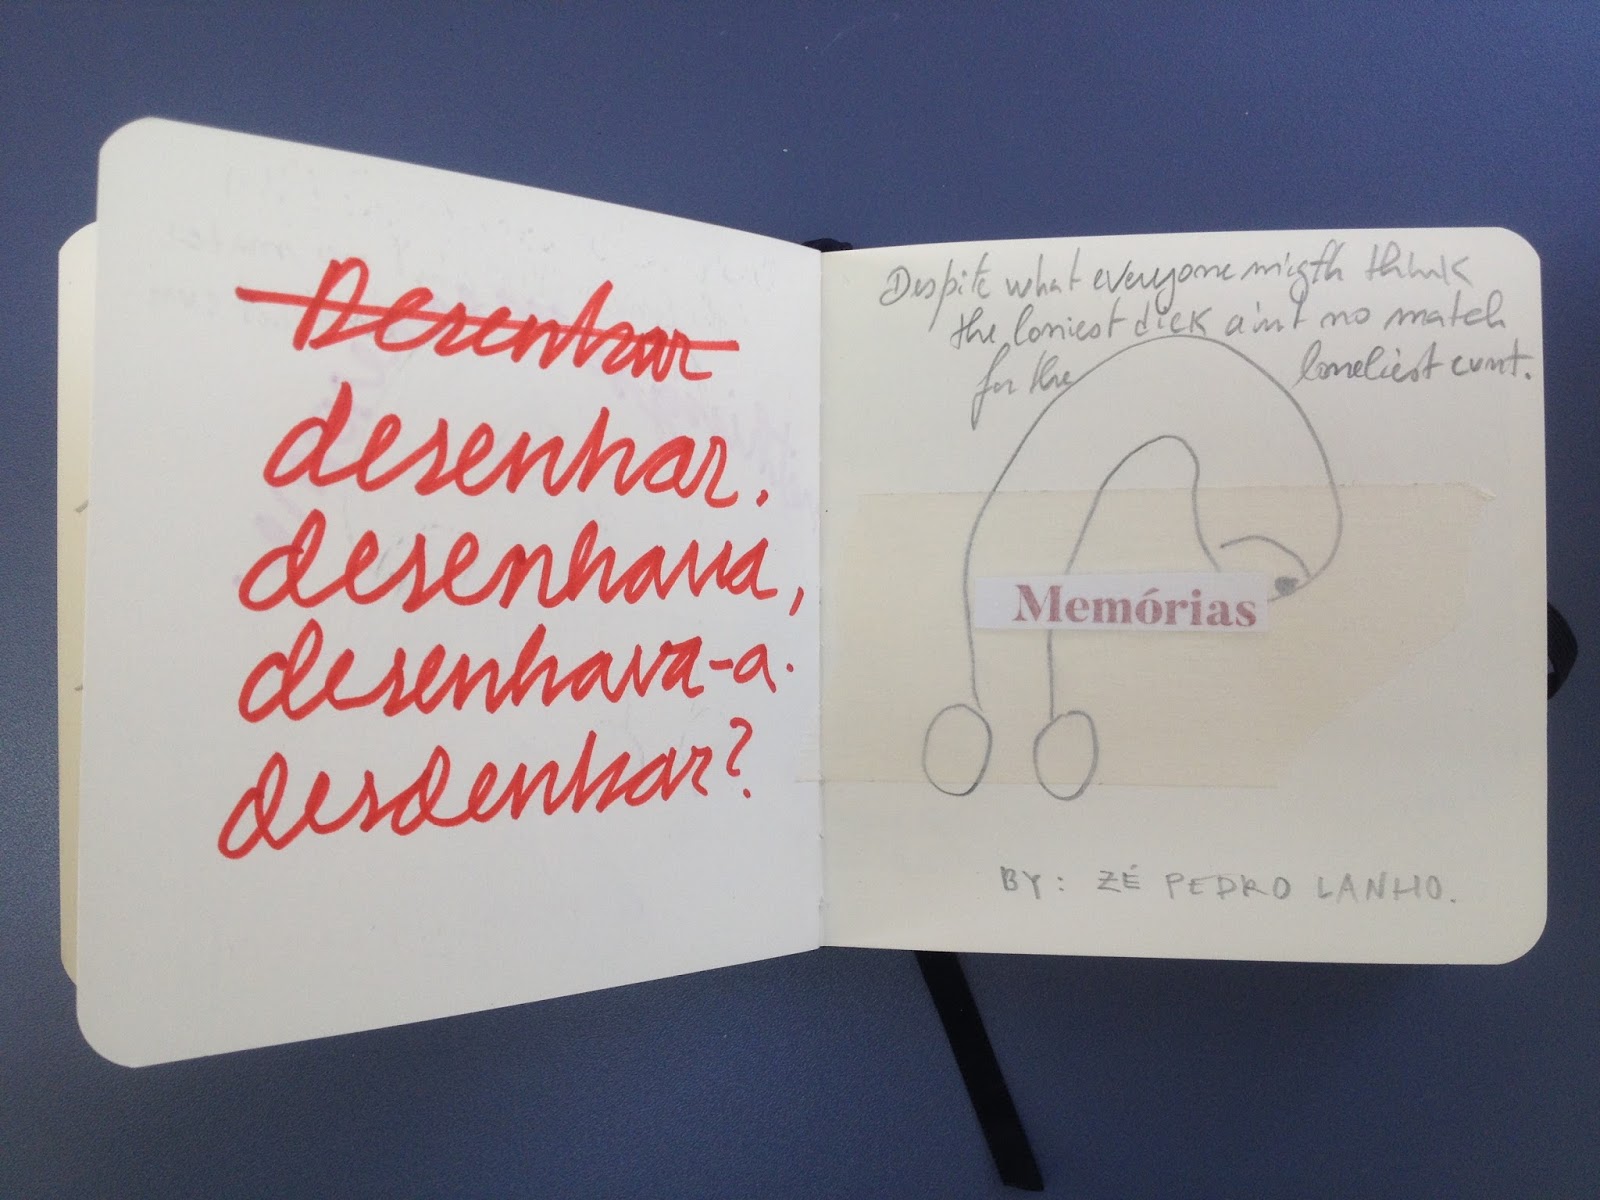 Desenhar
desenhar.
desenhava,
desenhava-a.
desdenhar?
Despite what everyone migth think
the loniest dick ain't no match
for the loneliest cunt.
Memórias
BY: ZÉ PEDRO LANHO.